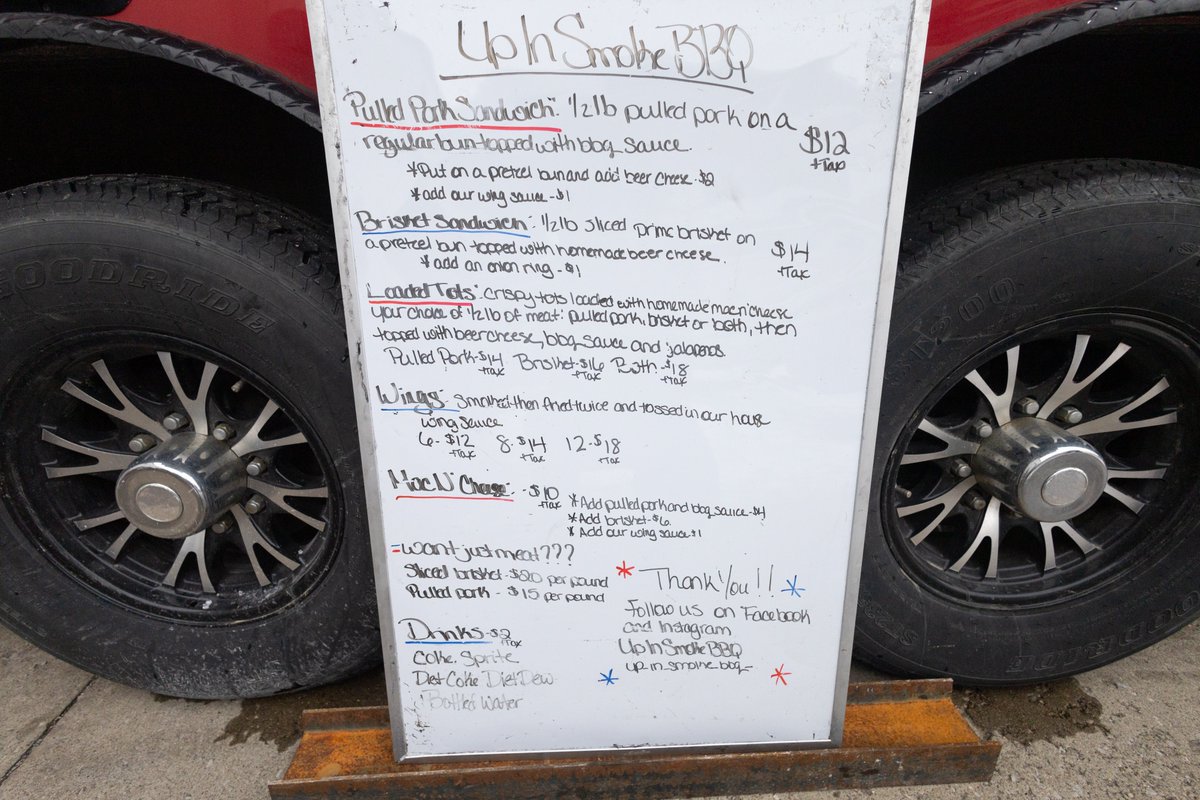 Up In Smoke BBQ
Pulled Pork Sandwich: 1/2 lb pulled pork on a
regular bun topped with bbq sauce.
$12
+Tax
*Put on a pretzel bun and add beer cheese - $2
*add our wing sauce - $1
Brisket Sandwich: 1/2 lb sliced prime brisket on
a pretzel bun topped with homemade beer cheese.
$14
+Tax
* add an onion ring - $1
Loaded Tots: crispy tots loaded with homemade mac n' cheese
your choice of 1/2 lb of meat: pulled pork, brisket or both, then
topped with beer cheese, bbq sauce and jalapenos.
Pulled Pork - $14 Brisket - $16 Both - $18
+Tax +Tax +Tax
Wings: Smoked then fried twice and tossed in our house
wing sauce
6 - $12 8 - $14 12 - $18
+Tax +Tax +Tax
Mac N' Cheese: - $10
+Tax
*Add pulled pork and bbq sauce - $4
*Add brisket - $6
* Add our wing sauce $1
=want just meat???
Sliced brisket - $20 per pound
Pulled pork - $15 per pound
Drinks - $2
+Tax
Coke, Sprite
Diet Coke Diet Dew
Bottled Water
* Thank You!! *
Follow us on Facebook
and Instagram
Up In Smoke BBQ
* up in smoke bbq *
GOODRIDE
GOODRIDE